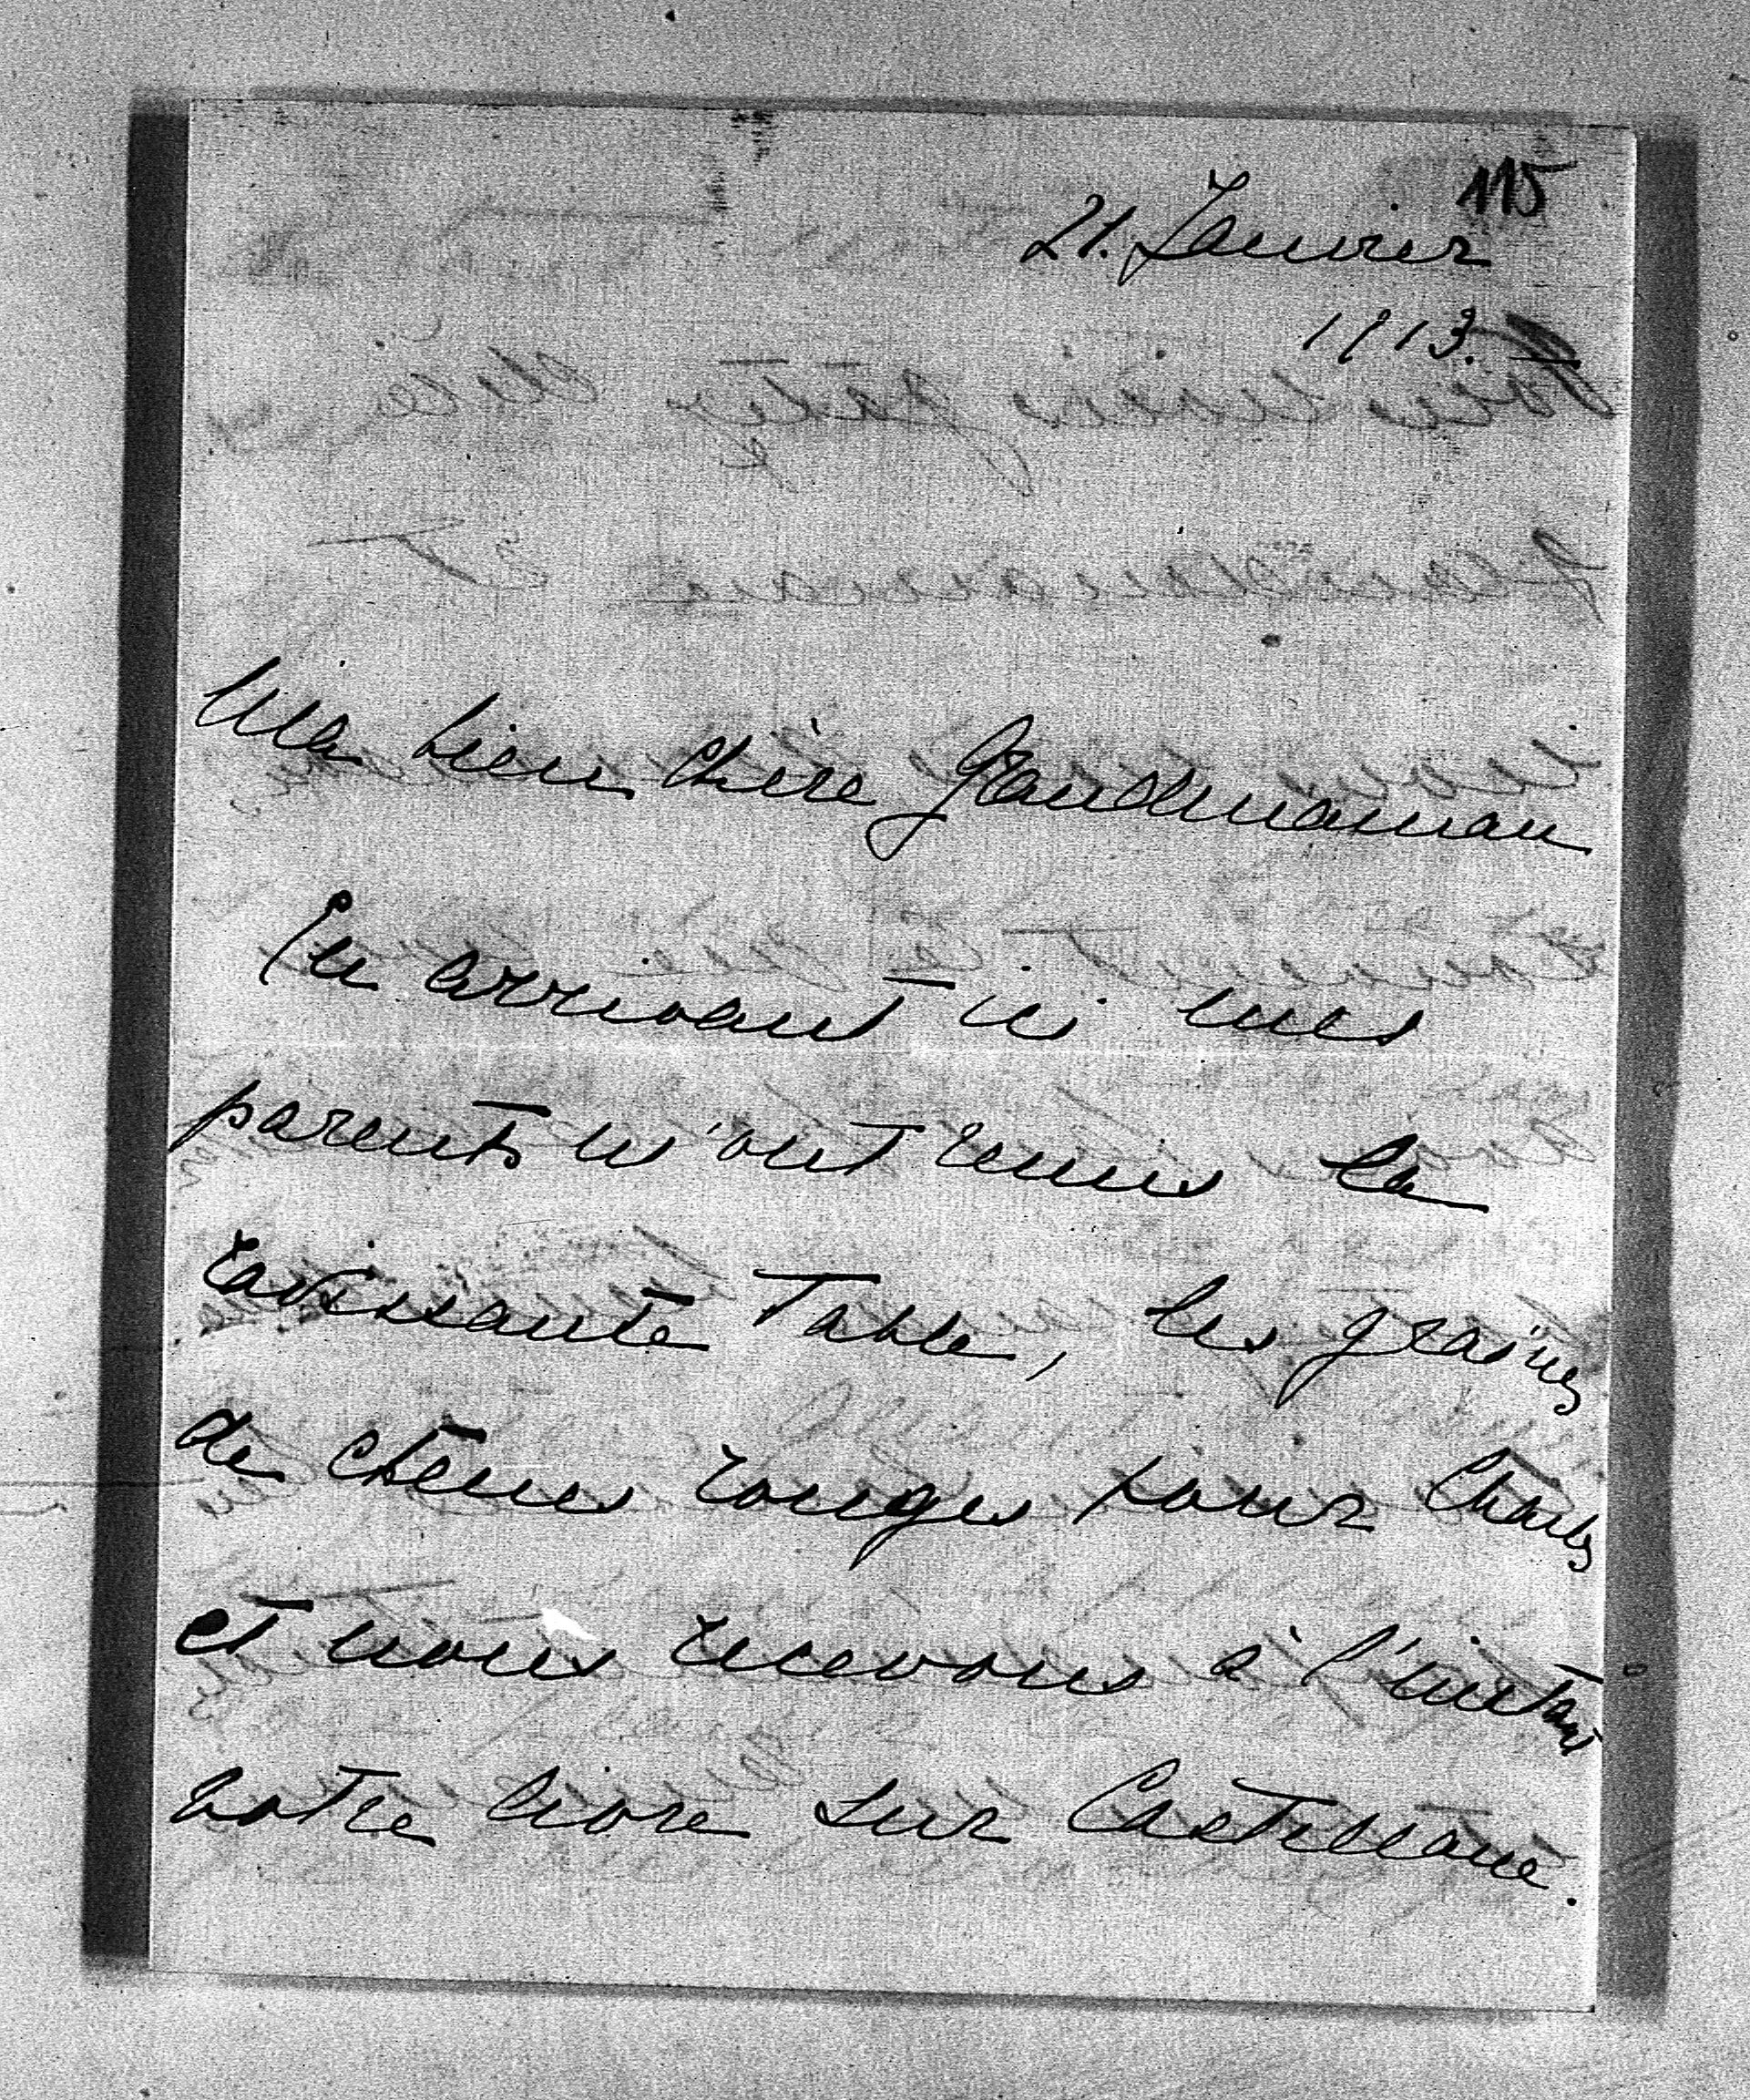 115
21. Janvier
1913.
Ma bien chère Grandmaman
En arrivant ici mes
parents m'ont remis la
ravissante table, les graines
de chênes rouges pour Charles
et nous recevons à l'instant
votre livre sur Castellane.